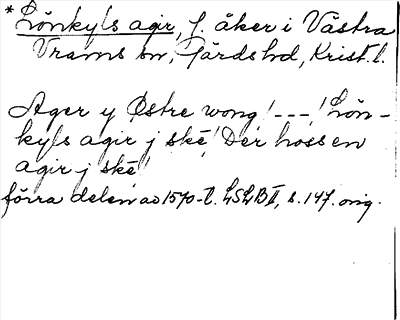 * Lönkyls agir, f. åker i Västra
Vrams sn, Gärds hd, Krist. l.
Ager y Østre wong! --- ! Lön-
kyls agir j ské! Der hoss en
agir j ské!
förra delen av 1570-t. LSLB II, s. 147. orig.